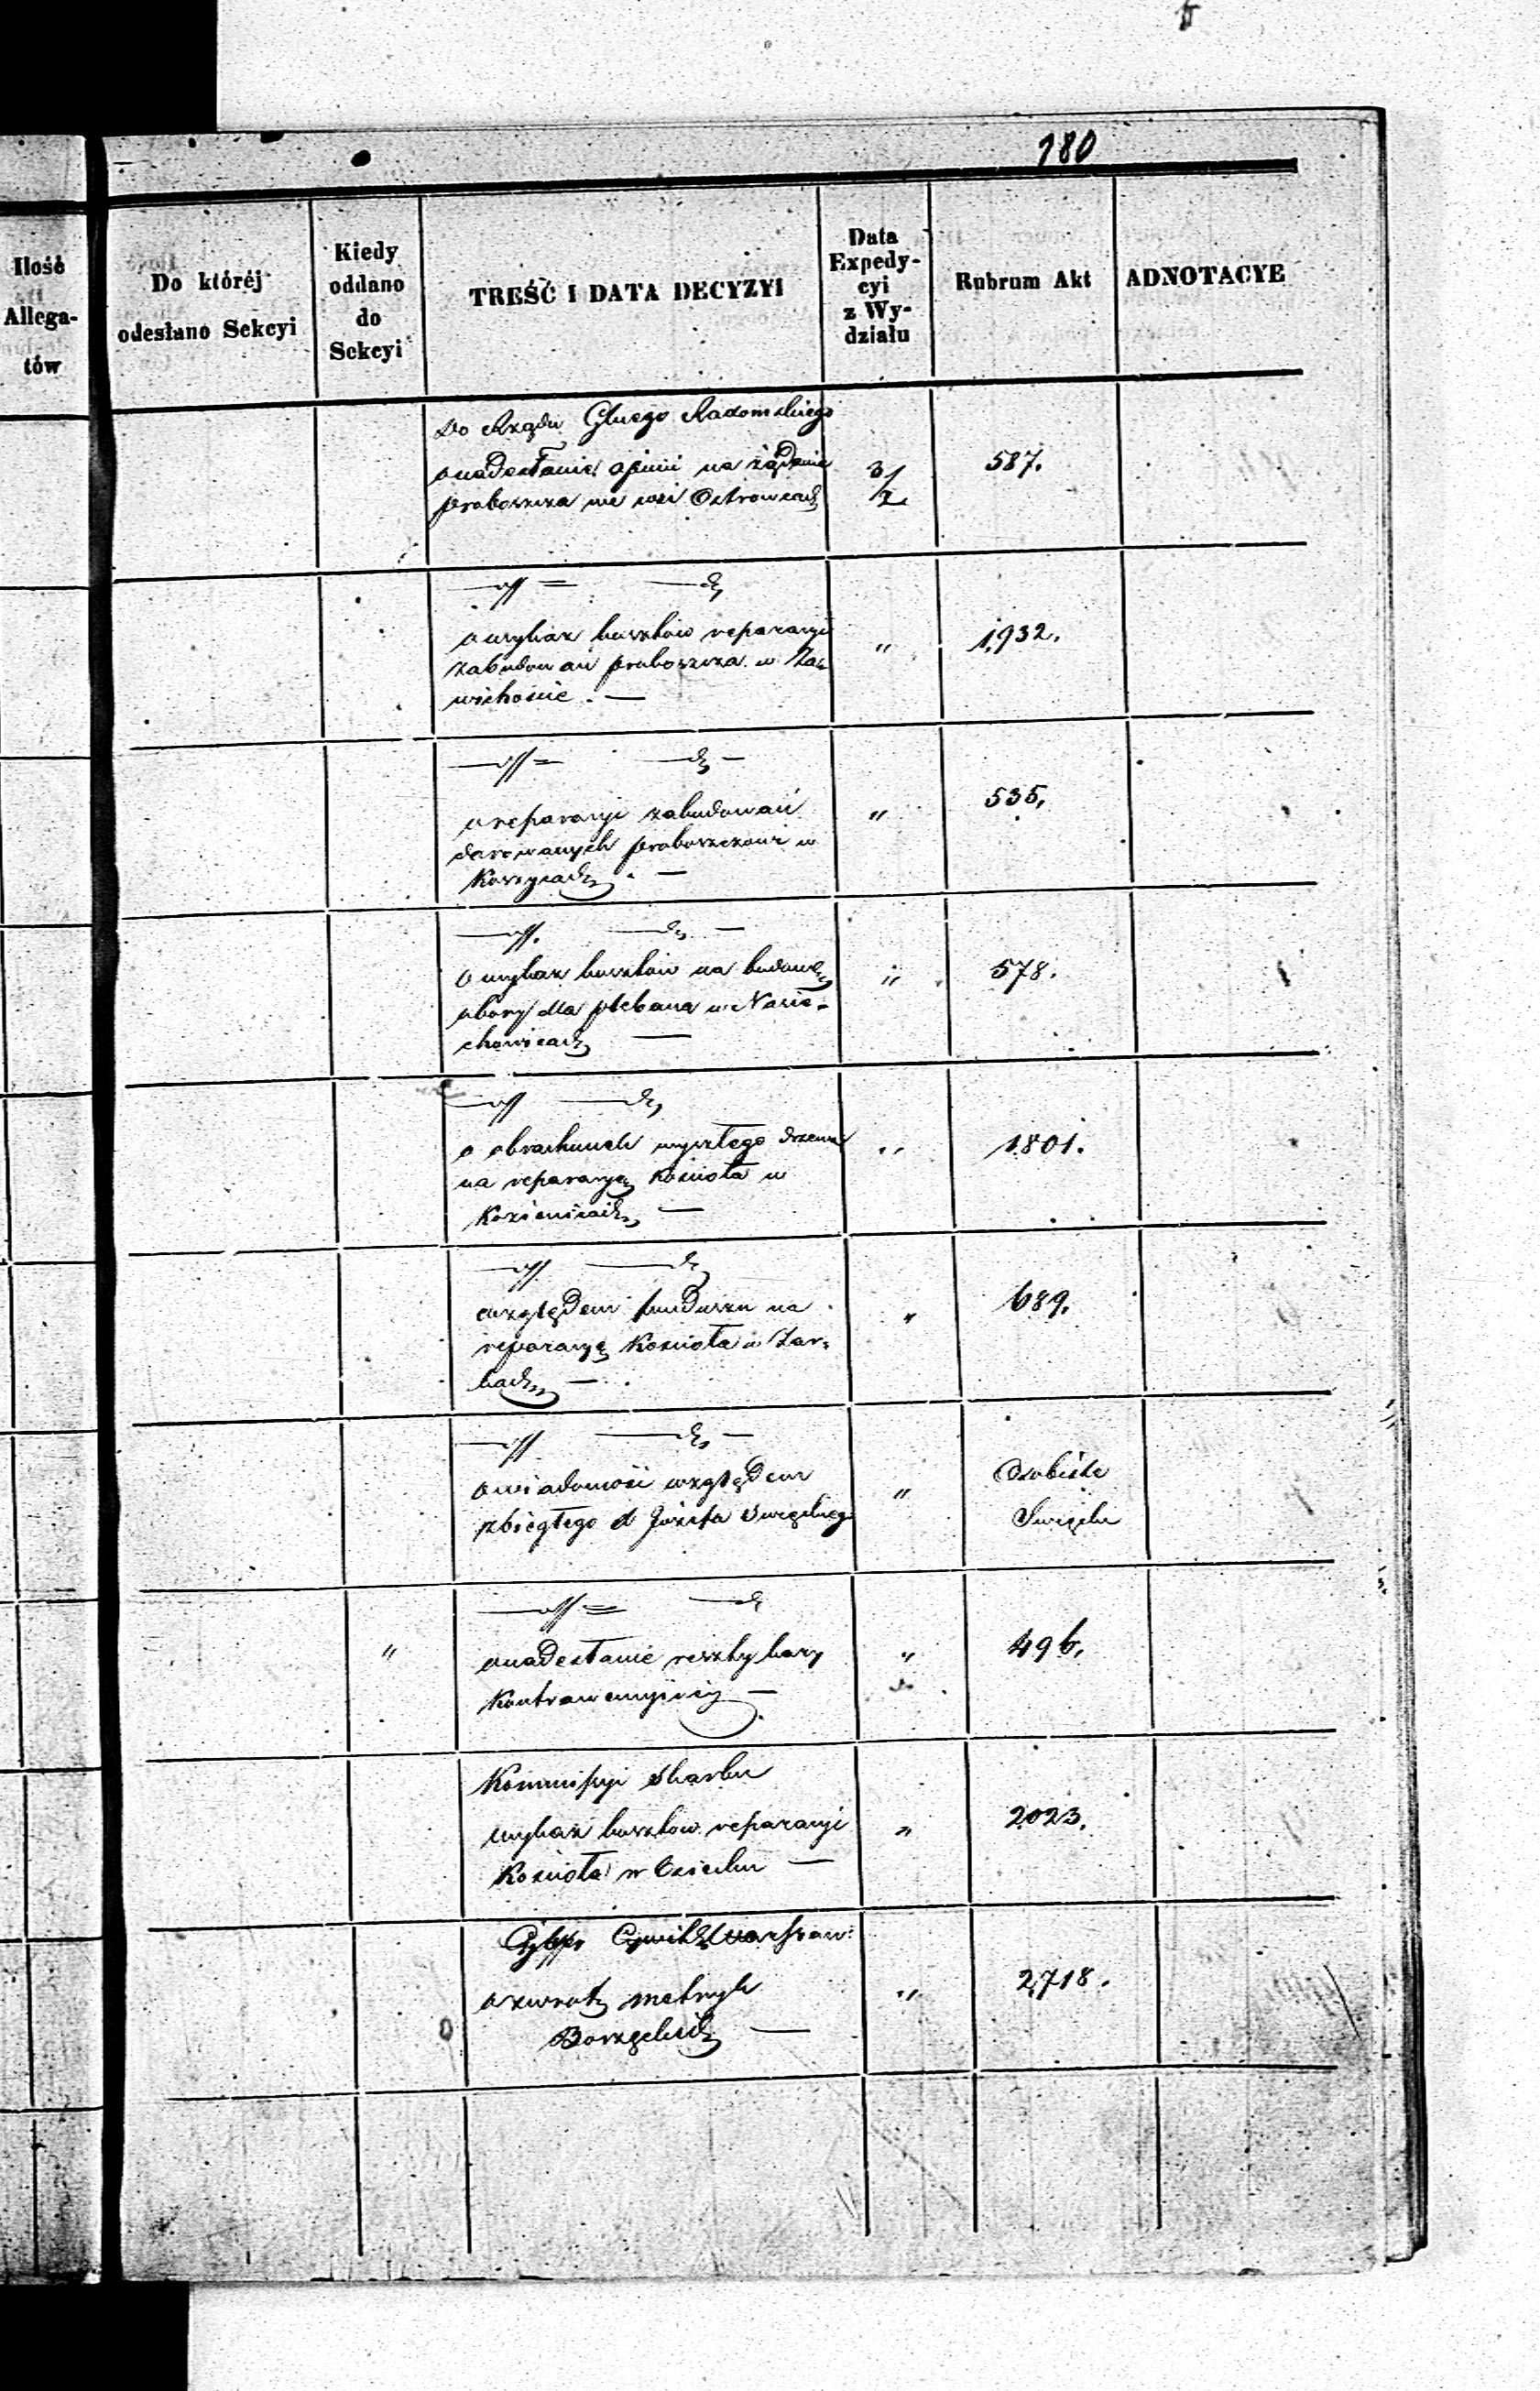 180
Ilość
Allega-
tów
Do któréj
odesłano Sekcyi
Kiedy
oddano
do
Sekcyi
TREŚĆ I DATA DECYZYI
Data
Expedy-
cyi
z Wy-
działu
Rubrum Akt
ADNOTACYE
Do Rządu Gluego Radomskiego
o nadesłanie opinii na żądanie
proboszcza we wsi Ostrowcach
3/2
587.
o wykaz kosztów reparacyi
zabudowań proboszcza w Za-
wichoście. —
"
1,932.
o reparacyi zabudowań
darowanych proboszczowi w
Koszycach. —
"
535,
o wykaz kosztów na budowę
obory dla plebana w Nasie-
chowicach —
"
578.
o obrachunek wyszłego drzewa
na reparacyą kościoła w
Kozienicach —
"
1801.
względem funduszu na
reparacyą kościoła w Żar-
kach —
"
689.
o wiadomość względem
zbiegłego X Józefa
"
Osobiste
"
o nadesłanie reszty kary
kontrawencyjnéj —
"
496.
Kommissyi Skarbu
wykaz kosztów reparacyi
kościoła w —
"
2023.
Cywil Warszaw:
o zwrot metryk
—
"
2,718.